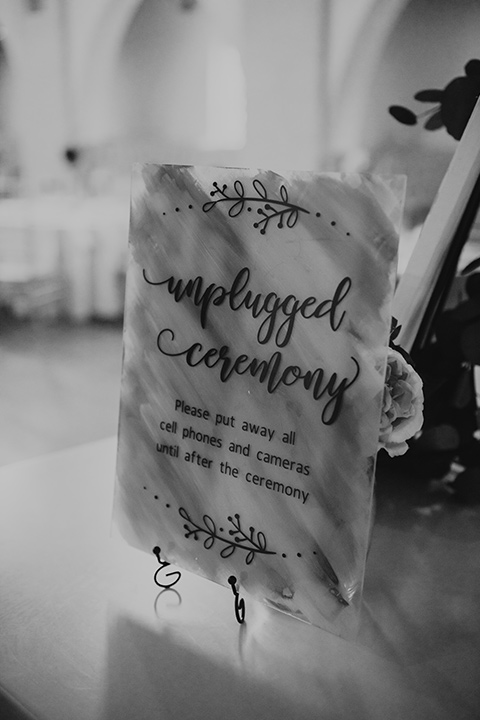 unplugged
ceremony
Please put away all
cell phones and cameras
until after the ceremony